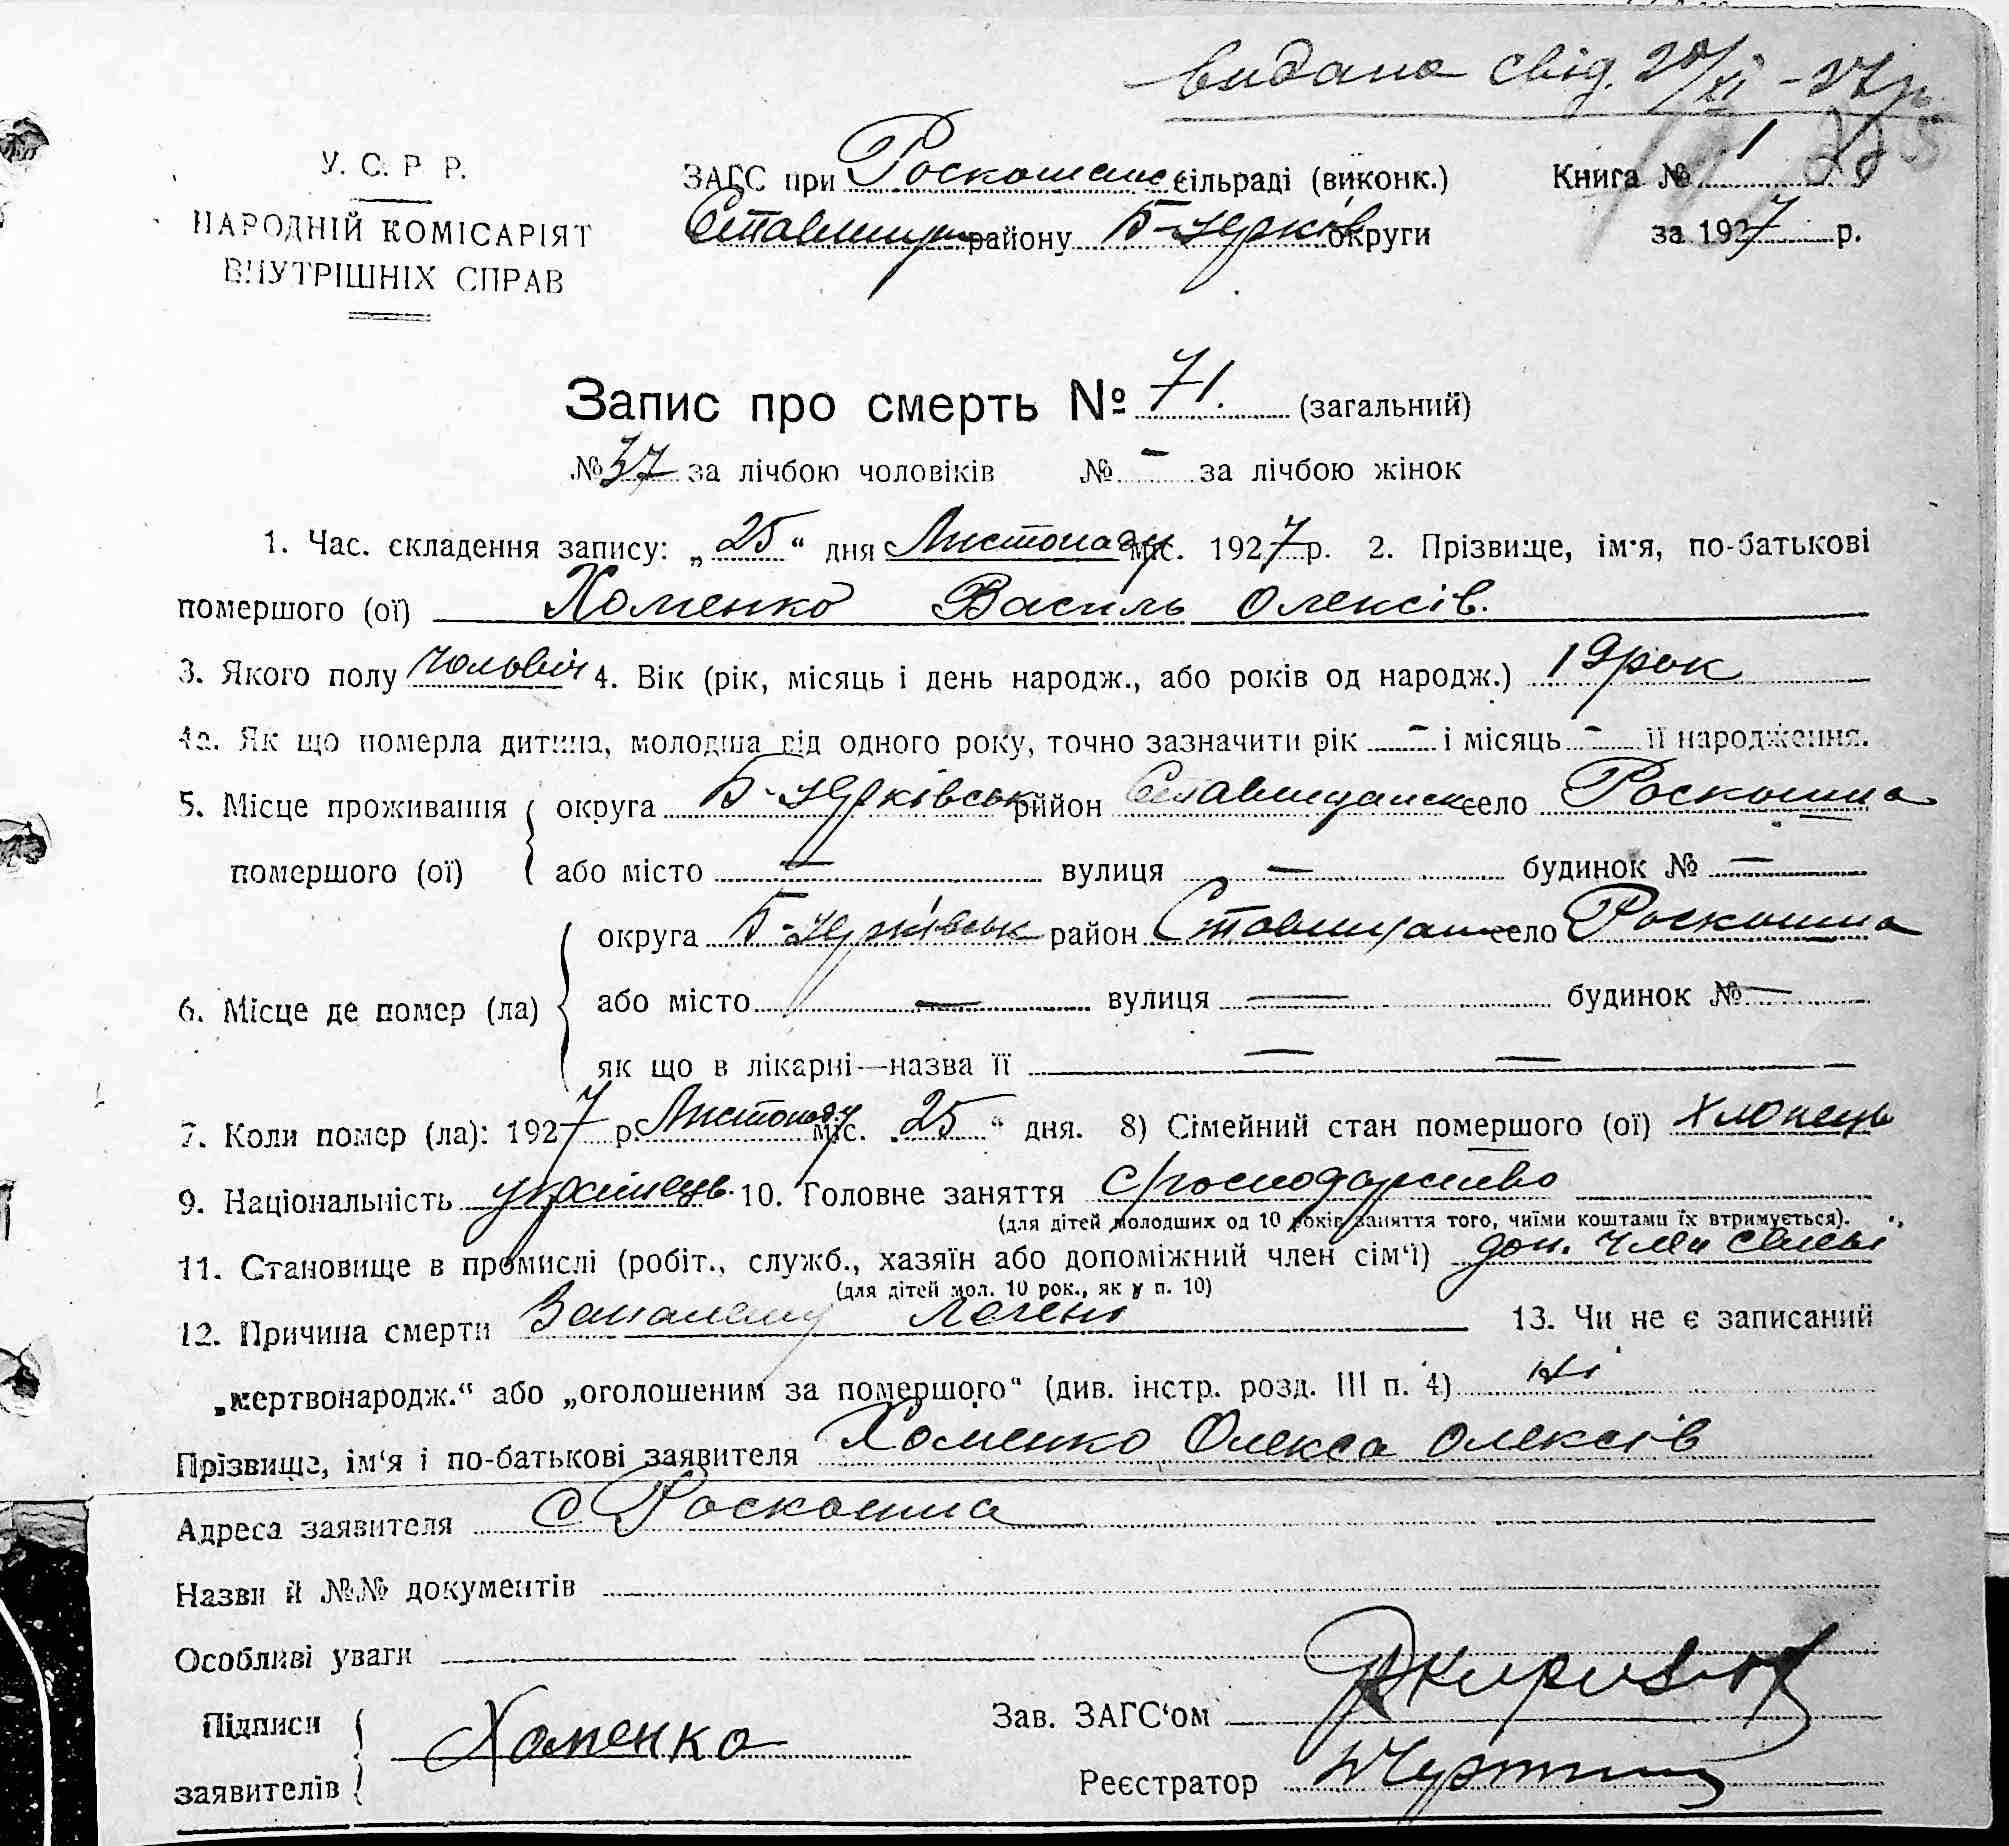 видано свід. /XI - 27р
У. С. Р. Р.
НАРОДНІЙ КОМІСАРІЯТ
ВНУТРІШНІХ СПРАВ
ЗАГС при Роскошанс сільраді (виконк.)
Ставищан району Б-Церків округи
Книга № 1
за 1927 р.
Запис про смерть № 71. (загальний)
№ 37 за лічбою чоловіків № - за лічбою жінок
1. Час. складення запису: „25“ дня Листопаду міс. 1927 р. 2. Прізвище, ім'я, по-батькові
помершого (ої) Хоменко Василь Олексів.
3. Якого полу чоловіч 4. Вік (рік, місяць і день народж., або років од народж.) 19 рок
4а. Як що померла дитина, молодша від одного року, точно зазначити рік - і місяць - її народження.
5. Місце проживання помершого (ої) округа Б-Церківськ район Ставищанськ село Роскошна
або місто — вулиця — будинок № —
6. Місце де помер (ла) округа Б-Церківськ район Ставищан село Роскошна
або місто — вулиця — будинок № —
як що в лікарні—назва її — —
7. Коли помер (ла): 1927 р. Листопаду міс. „25“ дня. 8) Сімейний стан помершого (ої) хлопець
9. Національність українець 10. Головне заняття с/господарство
(для дітей молодших од 10 років заняття того, чиїми коштами їх втримується).
11. Становище в промислі (робіт., служб., хазяїн або допоміжний член сім'ї) доп. член сімьї
(для дітей мол. 10 рок., як у п. 10)
12. Причина смерти Запалену легень 13. Чи не є записаний
„мертвонародж.“ або „оголошеним за померного“ (див. інстр. розд. III п. 4) ні
Прізвище, ім'я і по-батькові заявителя Хоменко Олекса Олексів
Адреса заявителя с Роскошна
Назви й №№ документів
Особливі уваги
Підписи заявителів Хоменко
Зав. ЗАГС'ом
Реєстратор